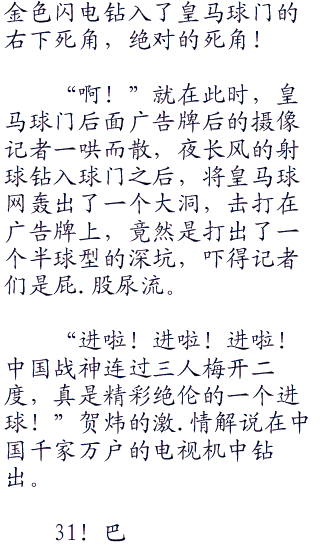 金色闪电钻入了皇马球门的
右下死角，绝对的死角！
“啊！”就在此时，皇
马球门后面广告牌后的摄像
记者一哄而散，夜长风的射
球钻入球门之后，将皇马球
网轰出了一个大洞，击打在
广告牌上，竟然是打出了一
个半球型的深坑，吓得记者
们是屁.股尿流。
“进啦！进啦！进啦！
中国战神连过三人梅开二
度，真是精彩绝伦的一个进
球！”贺炜的激.情解说在中
国千家万户的电视机中钻
出。
31！巴